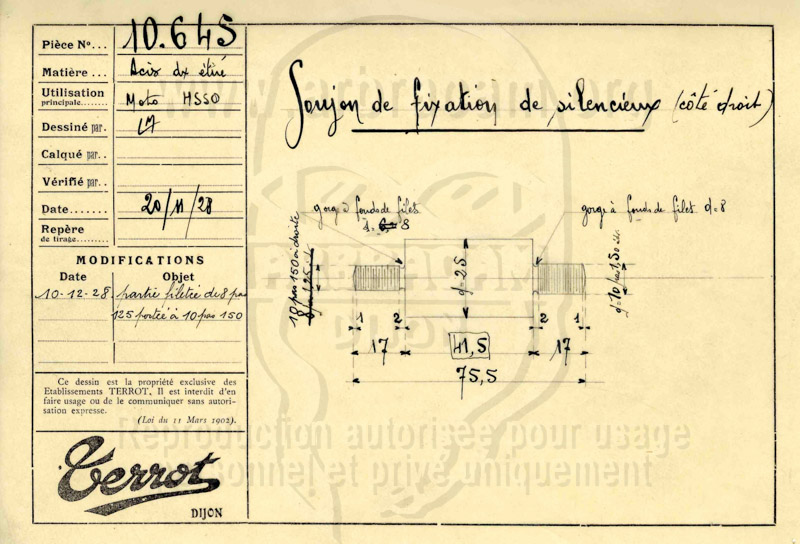 Pièce No... 10.645
Matière ... Acier dx étiré
Utilisation
principale........ Moto HSSO
Dessiné par. LM
Calqué par..
Vérifié par..
Date....... 20/11/28
Repère
de tirage.........
MODIFICATIONS
Date Objet
10-12-28 partie filetée de 8 pas
125 portée à 10 pas 150
Ce dessin est la propriété exclusive des
Etablissements TERROT. Il est interdit d'en
faire usage ou de le communiquer sans autori-
sation expresse.
(Loi du 11 Mars 1902).
Terrot
DIJON
Goujon de fixation de silencieux (côté droit)
gorge à fonds de filets
d= 8
gorge à fonds de filet d=8
10 pas 150 à droite
8 pas 1,25
d=25
d=10 pas 1,50
1 2 2 1
17 41,5 17
75,5
Reproduction autorisée pour usage
personnel et privé uniquement